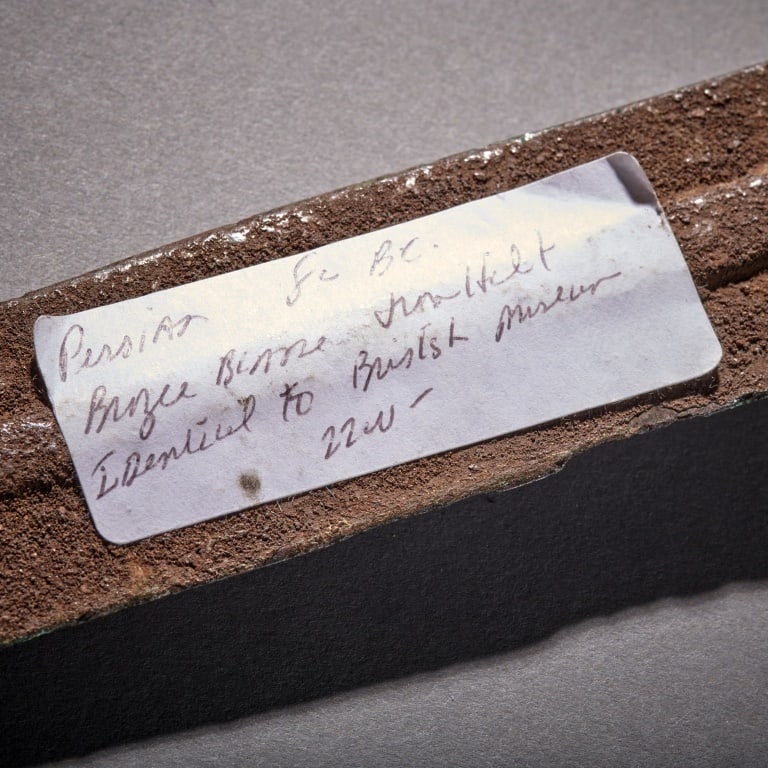 Persian 8c BC.
Bronze Blade Iron Hilt
Identical to British Museum
2200-